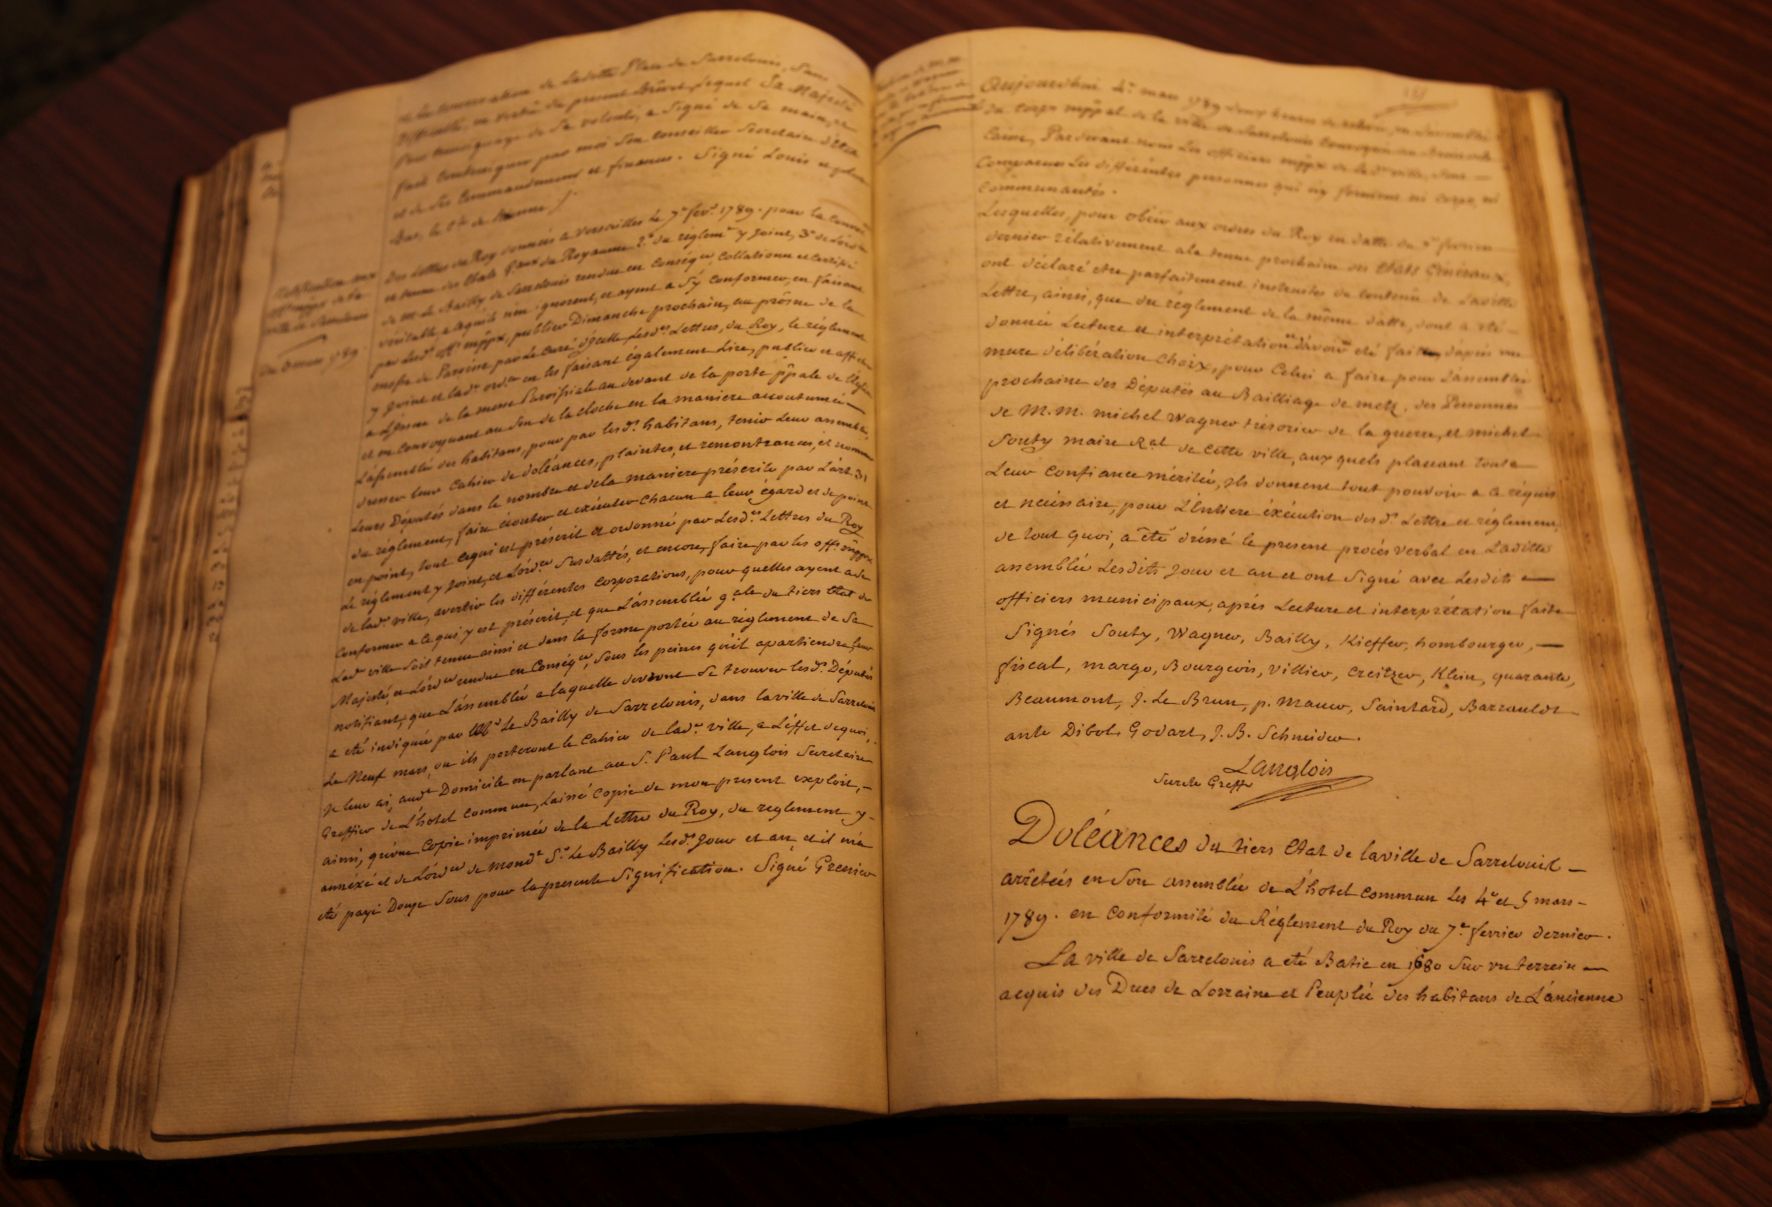 et la conservation de Laditte Place de Sarrelouis, Sans
difficulté, en vertu du present Brevet lequel Sa Majesté
Pour temoignage de Sa volonté, a Signé de Sa main, et
fait Contresigner par moi Son Conseiller Secretaire d'Etat
et de Ses Commandemens et finances. Signé Louis et plus
Bas, le
Notification aux
off.rs mpx de la
ville de Sarrelouis
du 3 mars 1789.
Des Lettres du Roy données a Versailles le 7.e fev.r 1789. pour la
et tenue des Etats G.aux du Royaume 2.e du réglem.t y Joint, 3.e de L'ord.ce
de M. Le Bailly de Sarrelouis rendue en Conséq.ce Collationné et Certifié
véritable, a Ceque n'en ignorent, et ayent a S'y Conformer, en faisant
par Lesd. off.rs mpx, publier Dimanche prochain, au prône de la
messe de Paroisse par Le Curé d'Icelle Lesd.es Lettres, du Roy, le réglement
y Joint et lad.e ord.ce en les faisant également Lire, publier et afficher
a L'issue de la messe Paroissiale au devant de la porte p.pale de L'Eglise
et en Convoquant au Son de la Cloche en la maniere accoutumée
L'assemblée des habitans, pour par lesd.s habitans, tenir Leur assemblée,
dresser leur Cahier de doléances, plaintes, et remontrances, et nommer
Leurs Députés dans le nombre et de la maniere préscrite par L'art. 31
du réglement, faire écouter et exécuter chacun a leur égard et de point
en point, tout Cequi est préscrit et ordonné par Lesd.es Lettres du Roy
Le réglement y Joint, et L'ord.ce Susdattés, et encore, faire par les off.rs mpx
de lad.e ville, avertir les différentes Corporations, pour quelles ayent a Se
Conformer a Ce qui y est préscrit, et que L'assemblée g.ale du tiers Etat de
Lad.e ville Soit tenue ainsi et dans la forme portée au réglement de Sa
Majesté, et L'ord.ce rendue en Conséq.ce, Sous les peines qu'il apartiendra, Leur
notifiant, que L'assemblée a laquelle devront Se trouver lesd.s Députés
a eté indiquée par M.r Le Bailly de Sarrelouis, dans la ville de Sarrelouis
Le Neuf mars, ou ils porteront le Cahier de lad.e ville, a L'effet de quoi,
Je leur ai, aud.t Domicile en parlant au S. Paul Langlois Secretaire
Greffier de L'hotel Commun, Laissé Copie de mon present exploit,
ainsi, qu'une Copie imprimée de la Lettre du Roy, du reglement y
annéxé et de L'ord.ce de mond.t S.r Le Bailly Lesd.s Jour et an et il m'a
eté payé Douze Sous pour la presente Signification. Signé Grenier
Aujourdhui 4.e mars 1789 deux heures de relevée, en L'assemblée
du Corps mpal de la ville de Sarrelouis Convoquée au
Pardevant nous Les officiers mpx de lad.e ville, Sont
Comparues Les différentes personnes qui ny forment ni Corps, ni
Communautés.
Lesquelles, pour obéir aux ordres du Roy en datte du 7 fevrier
dernier rélativement a la tenue prochaine des Etats Généraux,
ont déclaré etre parfaitement instruites du Contenu de Laditte
Lettre, ainsi, que du réglement de la même datte, dont a eté
donnée Lecture et interprétation
mure délibération Choix, pour Celui a faire pour L'assemblée
prochaine des Députés au Bailliage de metz. des Personnes
de M.M. michel Wagner trésorier de la guerre, et michel
Souty maire R.al de Cette ville, aux quels plaçant toute
Leur Confiance méritée, Ils donnent tout pouvoir a ce réquis
et nécéssaire, pour L'Entiere éxécution desd.s Lettre et réglement,
de tout quoi, a été dréssé le present procés verbal en Laditte
assemblée Lesdits Jour et an et ont Signé avec Lesdits
officiers municipaux, aprés Lecture et interprétation faite
Signés Souty, Wagner, Bailly, Kieffer, hombourger,
fiscal, margo, Bourgeois, Villier, Creitzer, Klein, quarante,
Beaumont, J. Le Brun, p. Maner, Saintard, Barrauldt
ante Dibot, Godart, J. B. Schneider.
Langlois
Sec.re Greff.
Doléances du tiers Etat de la ville de Sarrelouis
arrêtées en Son assemblée de L'hotel Commun Les 4.e et 5 mars
1789. en Conformité du Réglement du Roy du 7.e fevrier dernier.
La ville de Sarrelouis a eté Batie en 1680 Sur un terrein
acquis des Ducs de Lorraine et Peuplée des habitans de L'ancienne